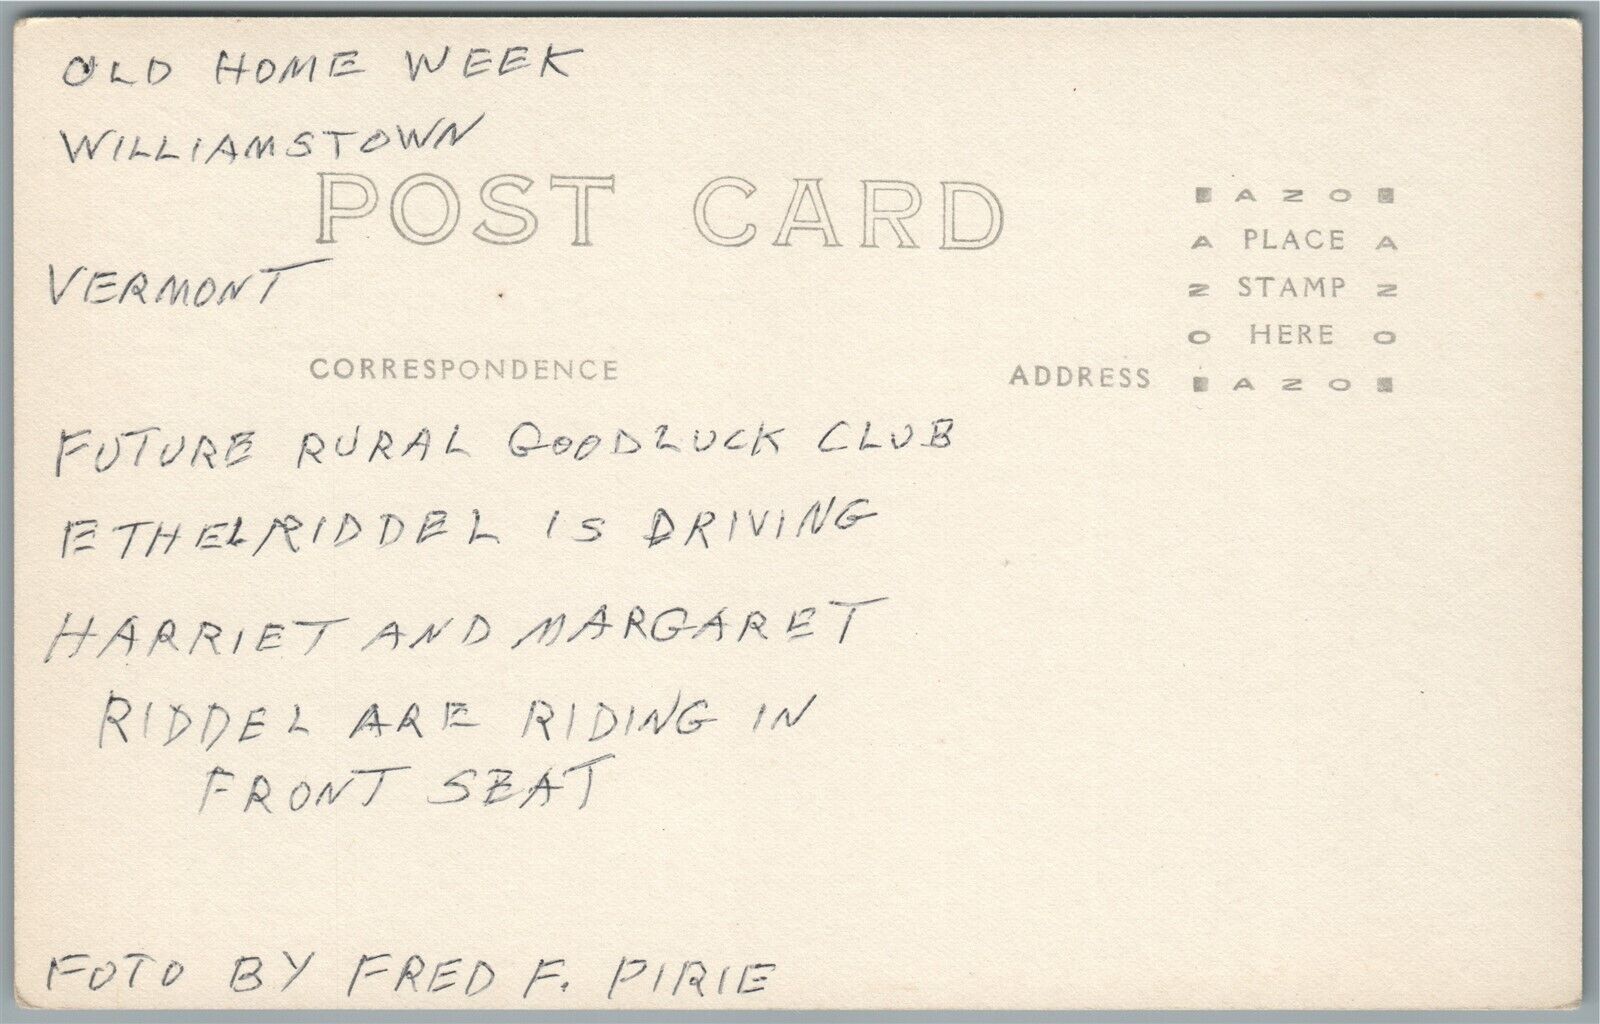 OLD HOME WEEK
WILLIAMSTOWN
POST CARD
VERMONT
CORRESPONDENCE
ADDRESS
AZO
A PLACE A
Z STAMP Z
O HERE O
AZO
FUTURE RURAL GOODLUCK CLUB
ETHEL RIDDEL IS DRIVING
HARRIET AND MARGARET
RIDDEL ARE RIDING IN
FRONT SEAT
FOTO BY FRED F. PIRIE